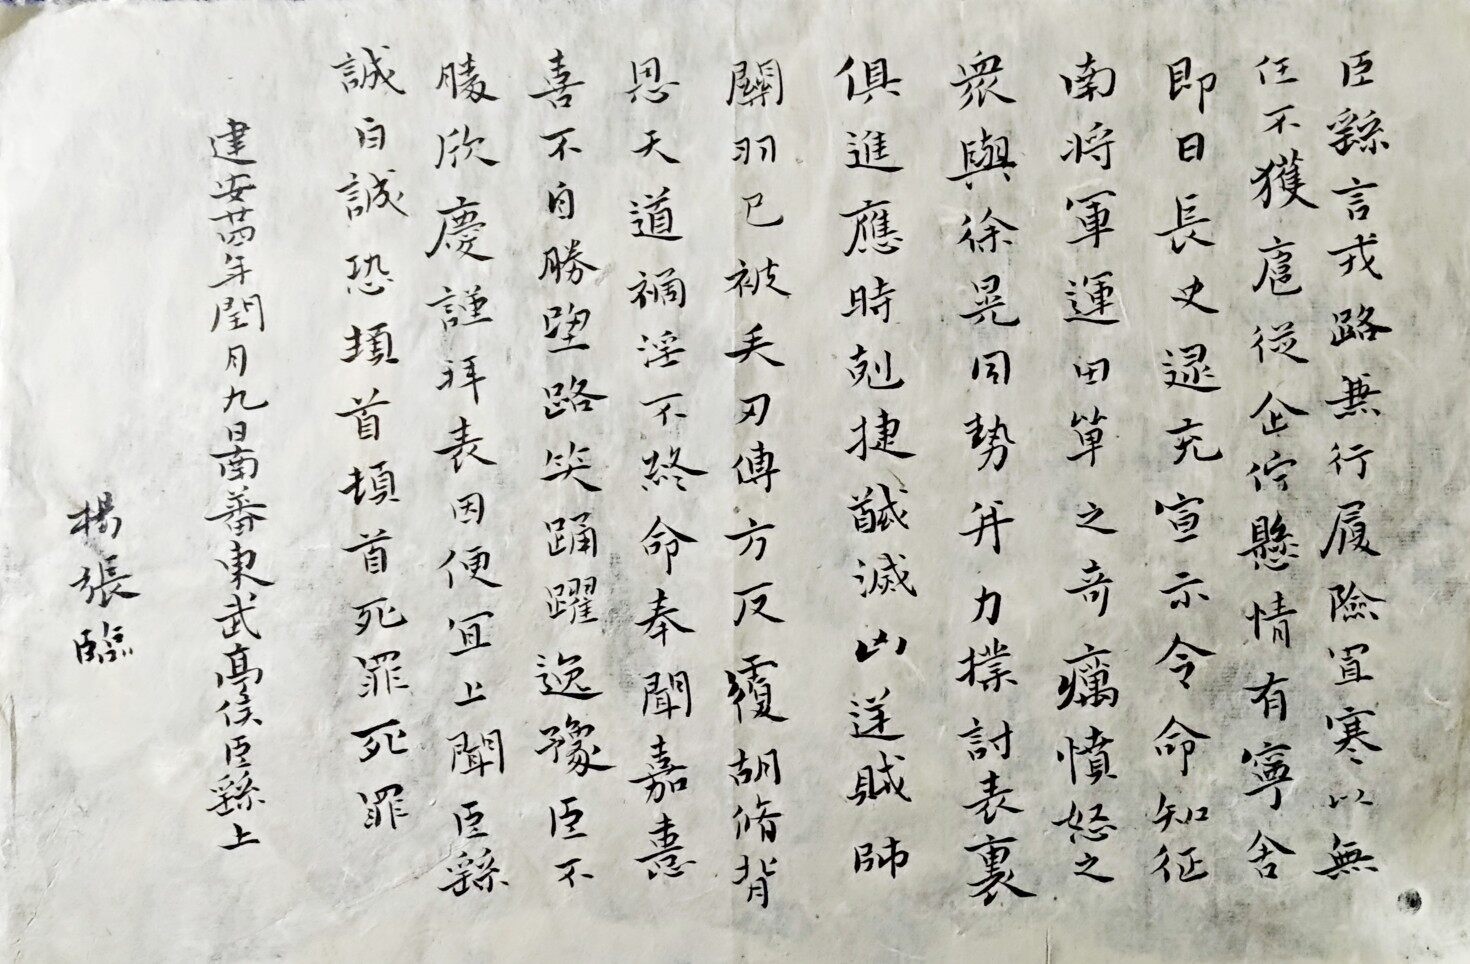 臣繇言戎路兼行履險冒寒以無
任不獲扈從企佇懸情有寧舍
即日長史逯充宣示令命知征
南將軍運田單之奇癘憤怒之
衆與徐晃同勢并力撲討表裏
俱進應時剋捷馘滅凶逆賊帥
關羽已被矢刃傅方反覆胡脩背
恩天道禍淫不終命奉聞嘉憙
喜不自勝望路笑踊躍逸豫臣不
勝欣慶謹拜表因便宜上聞臣繇
誠自誠恐頓首頓首死罪死罪
建安廿四年閏月九日南蕃東武亭侯臣繇上
楊張臨